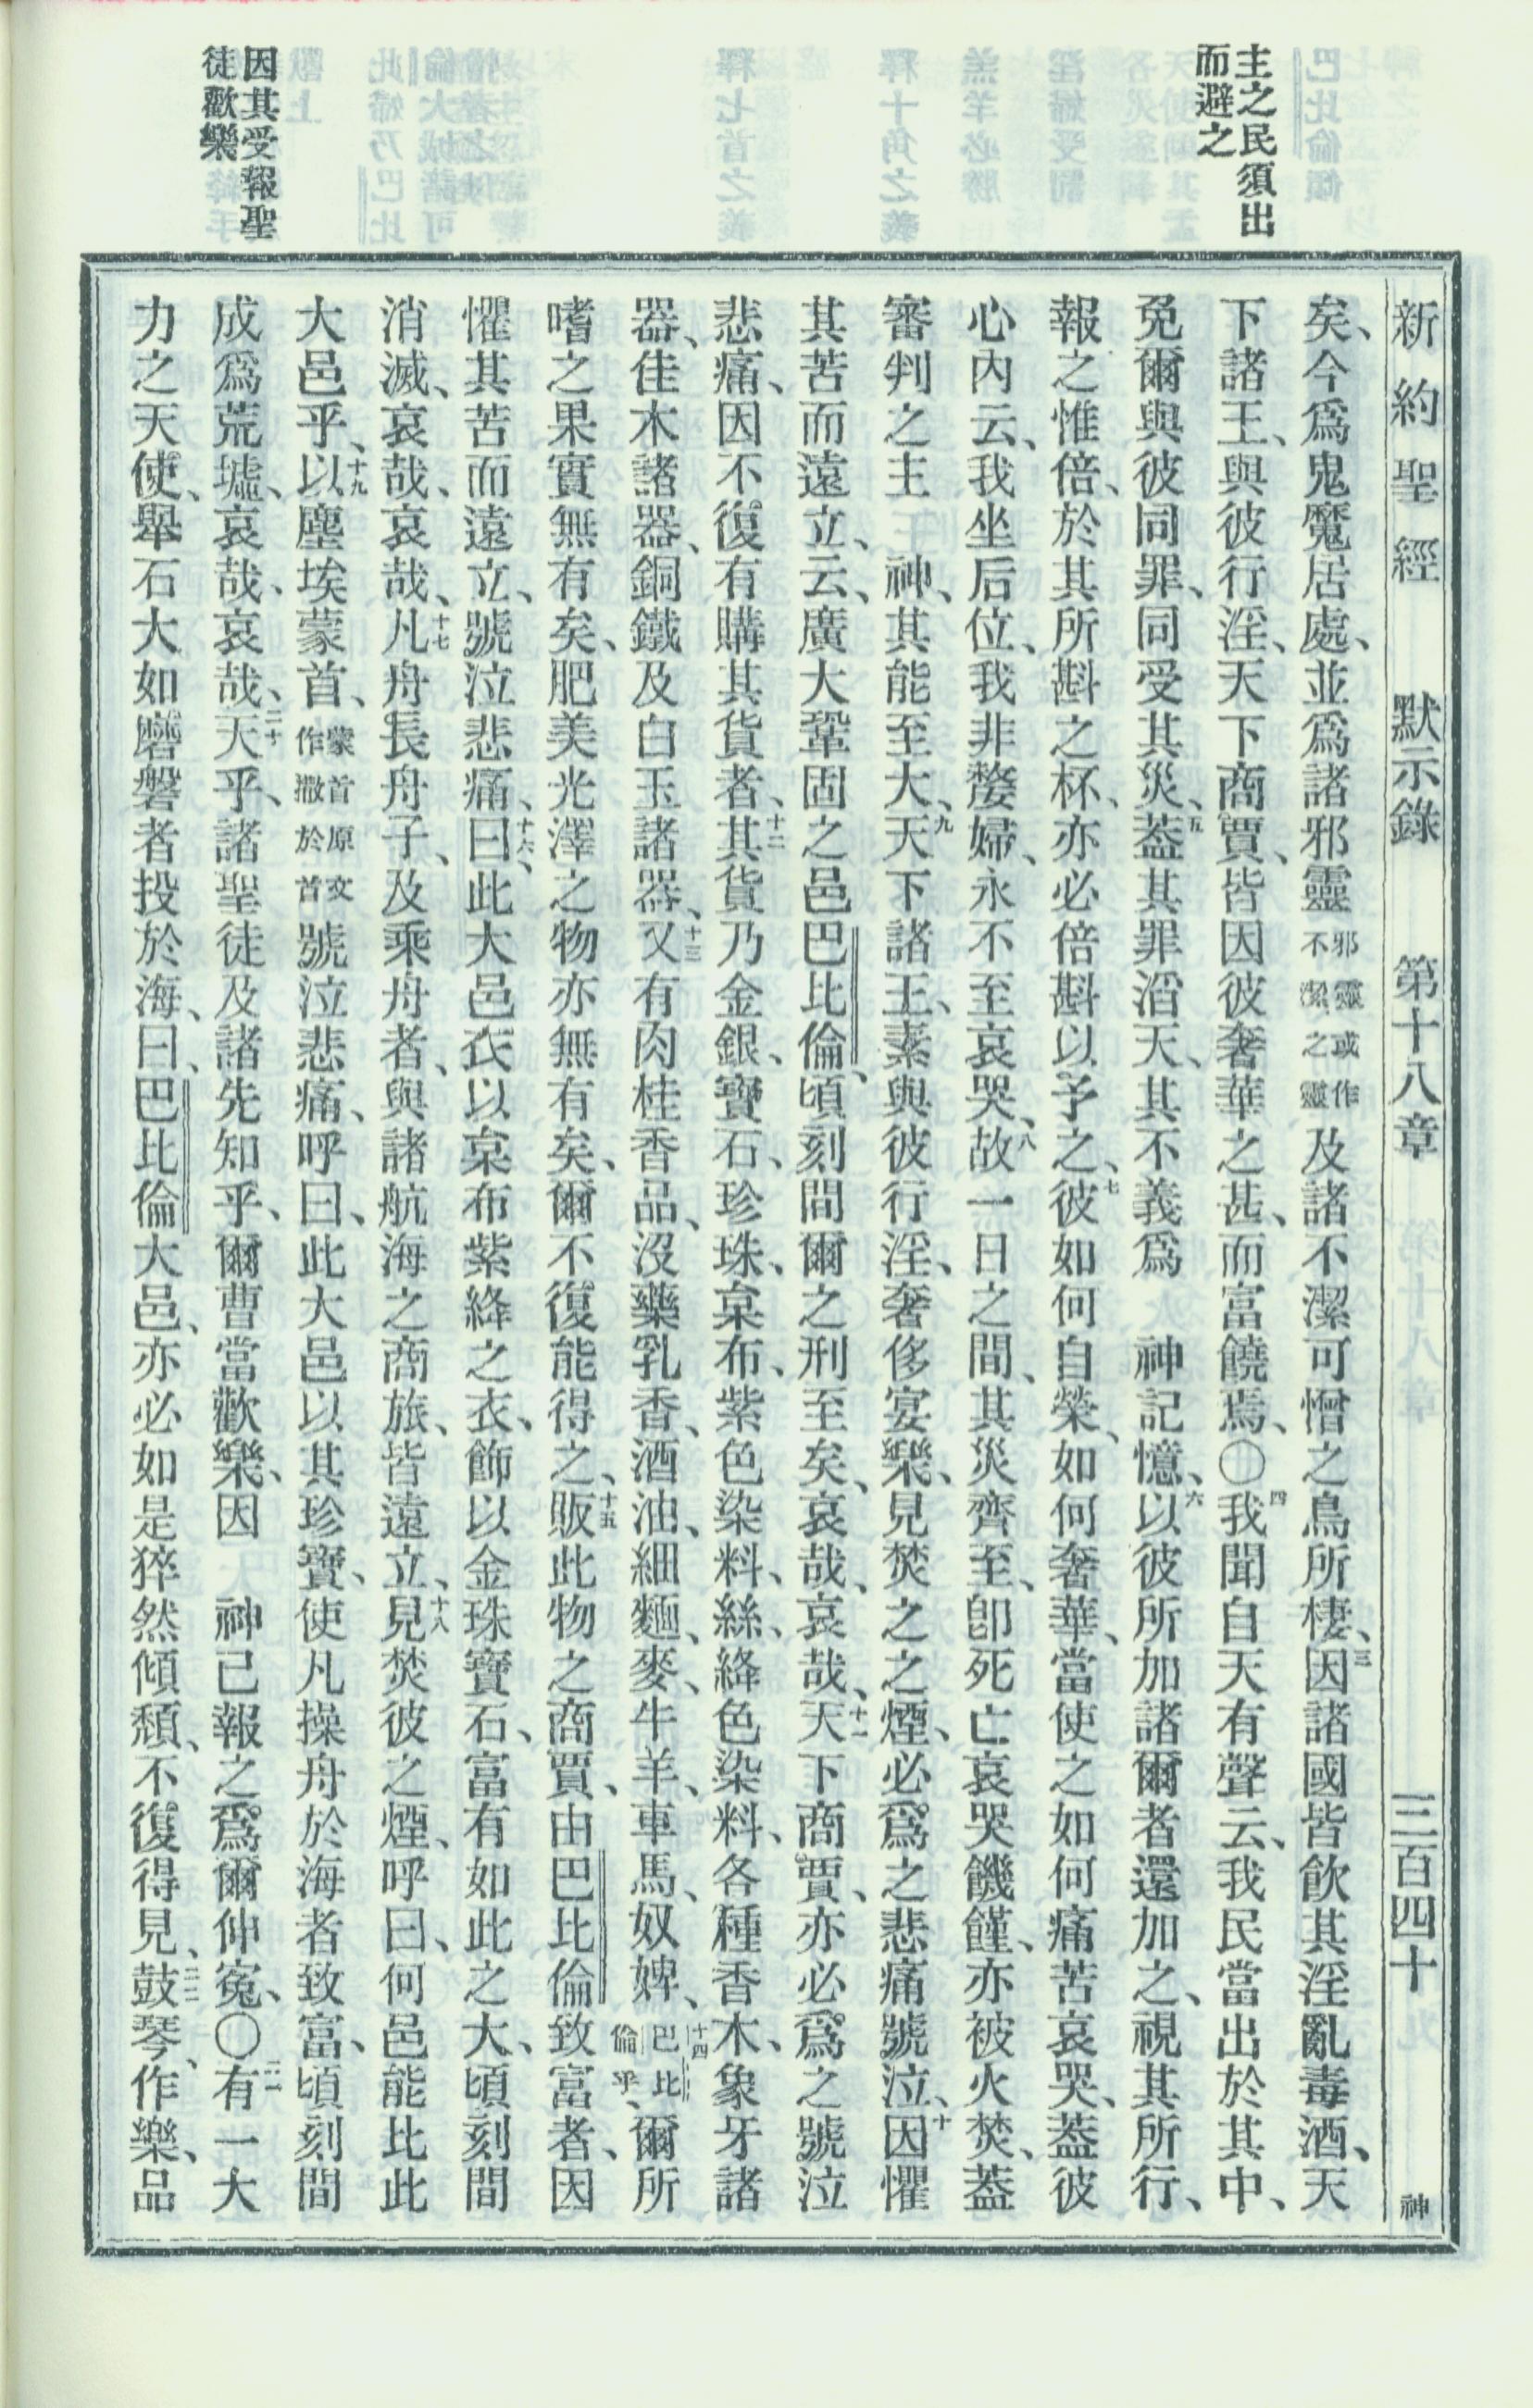 主之民須出
而避之
因其受報聖
徒歡樂
新約聖經 默示錄 第十八章 三百四十 神
矣、今爲鬼魔居處、並爲諸邪靈邪靈或作不潔之靈及諸不潔可憎之鳥所棲、三因諸國皆飲其淫亂毒酒、天
下諸王、與彼行淫、天下商賈、皆因彼奢華之甚、而富饒焉、〇四我聞自天有聲云、我民當出於其中、
免爾與彼同罪、同受其災、五蓋其罪滔天、其不義爲 神記憶、六以彼所加諸爾者還加之、視其所行、
報之惟倍、於其所斟之杯、亦必倍斟以予之、七彼如何自榮、如何奢華、當使之如何痛苦哀哭、蓋彼
心內云、我坐后位、我非嫠婦、永不至哀哭、八故一日之間、其災齊至、卽死亡哀哭饑饉、亦被火焚、蓋
審判之主 神、其能至大、九天下諸王、素與彼行淫、奢侈宴樂、見焚之之煙、必爲之悲痛號泣、十因懼
其苦而遠立、云、廣大鞏固之邑巴比倫、頃刻間爾之刑至矣、哀哉、哀哉、十一天下商賈、亦必爲之號泣
悲痛、因不復有購其貨者、十二其貨乃金銀、寶石、珍珠、枲布、紫色染料、絲、絳色染料、各種香木、象牙諸
器、佳木諸器、銅鐵及白玉諸器、十三又有肉桂香品、沒藥乳香、酒油、細麵、麥、牛羊、車馬、奴婢、十四巴比倫乎、爾所
嗜之果實無有矣、肥美光澤之物亦無有矣、爾不復能得之、十五販此物之商賈、由巴比倫致富者、因
懼其苦而遠立、號泣悲痛、十六曰、此大邑衣以枲布紫絳之衣、飾以金珠寶石、富有如此之大、頃刻間
消滅、哀哉、哀哉、十七凡舟長舟子、及乘舟者、與諸航海之商旅、皆遠立、十八見焚彼之煙、呼曰、何邑能比此
大邑乎、十九以塵埃蒙首、蒙首原文作撒於首號泣悲痛、呼曰、此大邑以其珍寶、使凡操舟於海者致富、頃刻間
成爲荒墟、哀哉、哀哉、二十天乎、諸聖徒及諸先知乎、爾曹當歡樂、因 神已報之、爲爾伸冤、〇二一有一大
力之天使、舉石大如磨磐者投於海、曰、巴比倫大邑、亦必如是猝然傾頹、不復得見、二二鼓琴、作樂、品